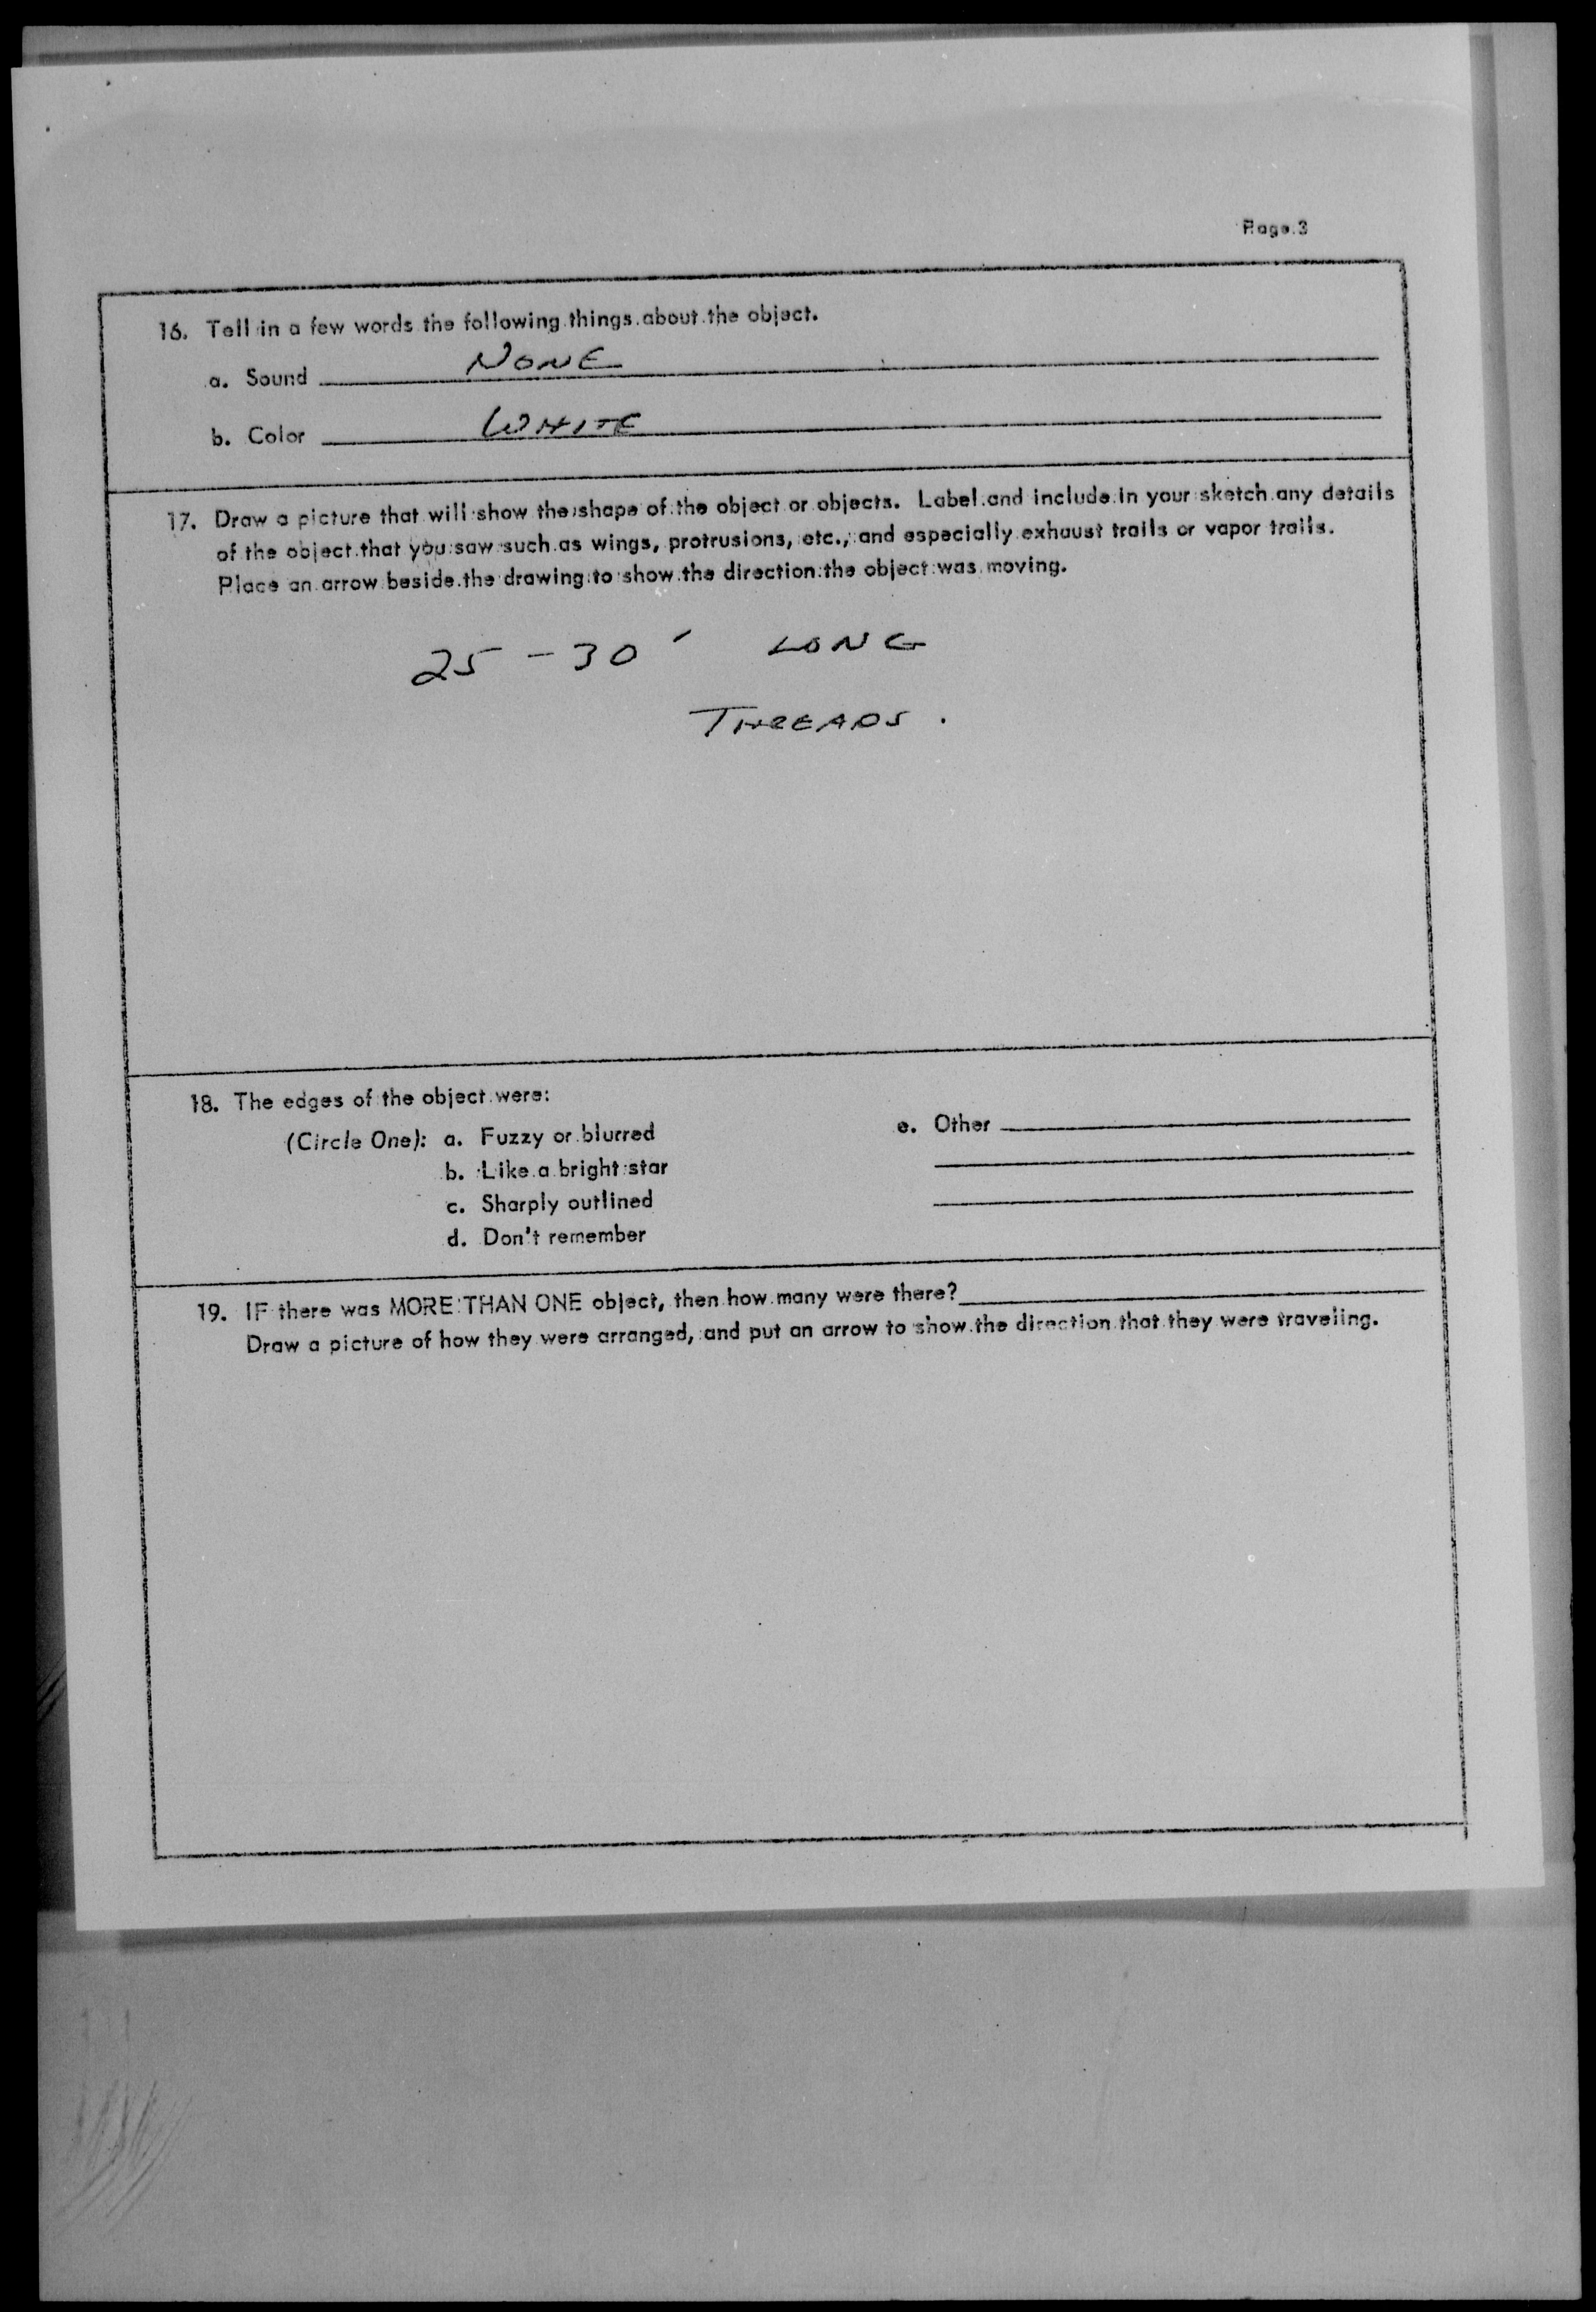 Page 3
16. Tell in a few words the following things about the object.
a. Sound NONE
b. Color WHITE
17. Draw a picture that will show the shape of the object or objects. Label and include in your sketch any details
of the object that you saw such as wings, protrusions, etc., and especially exhaust trails or vapor trails.
Place an arrow beside the drawing to show the direction the object was moving.
25 - 30' LONG
THREADS.
18. The edges of the object were:
(Circle One): a. Fuzzy or blurred
b. Like a bright star
c. Sharply outlined
d. Don't remember
e. Other
19. IF there was MORE THAN ONE object, then how many were there?
Draw a picture of how they were arranged, and put an arrow to show the direction that they were traveling.